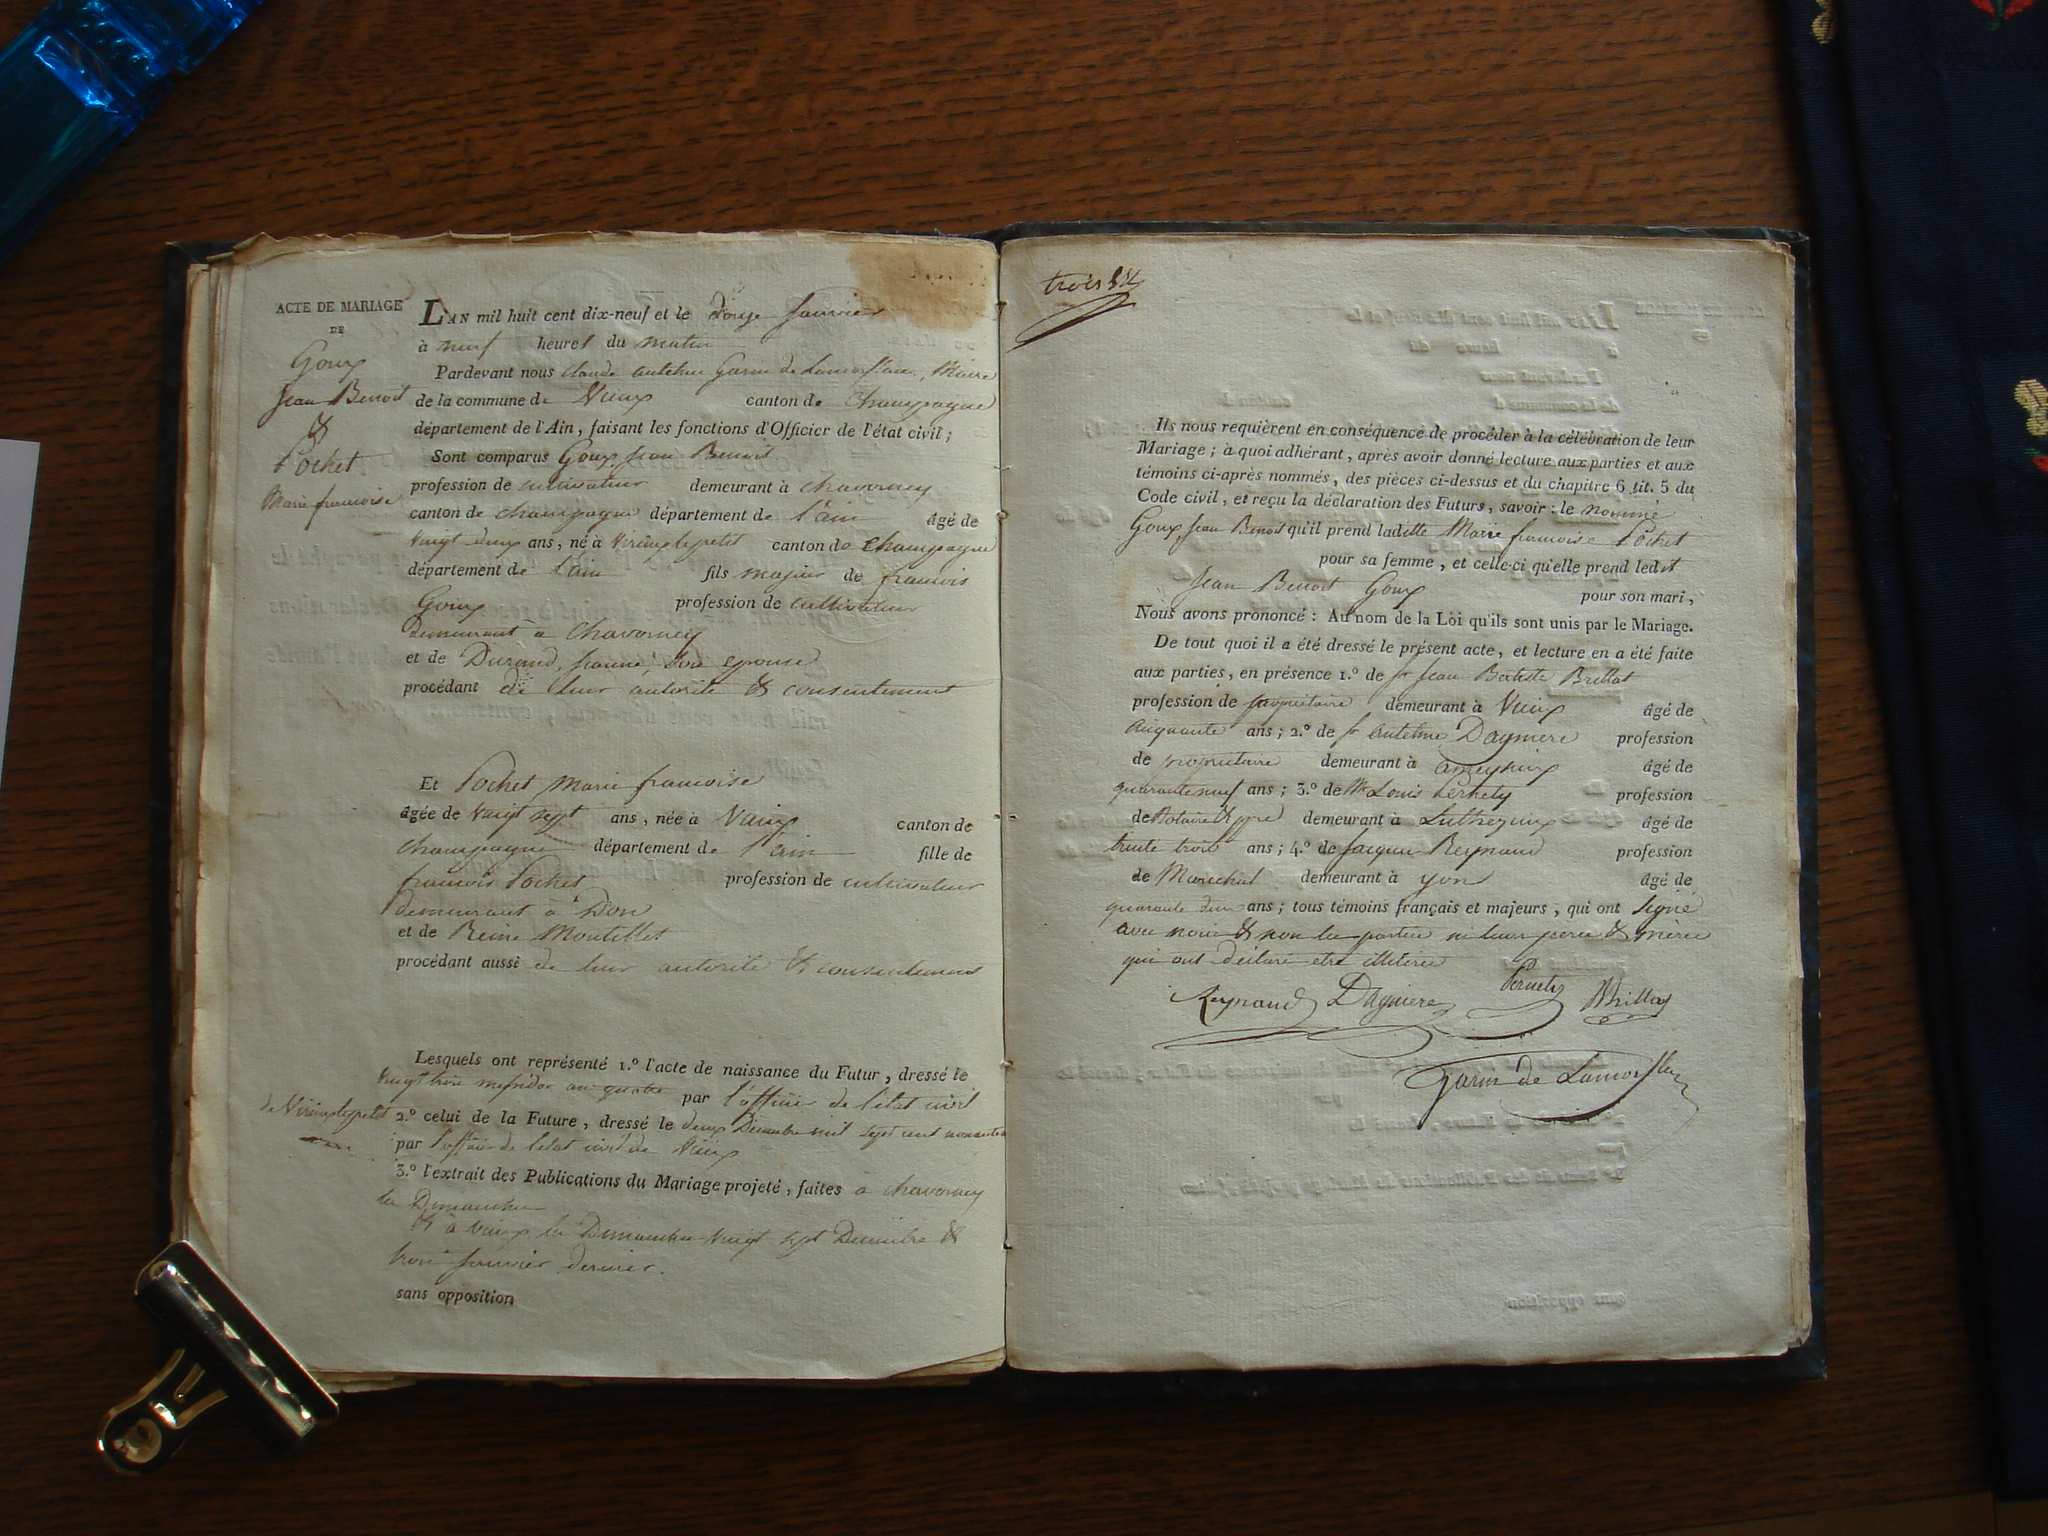 ACTE DE MARIAGE
DE
Goux
Jean Benoit
&
Pochet
Marie francoise
LAN mil huit cent dix-neuf et le douze Janvier
à neuf heures du matin
Pardevant nous claude antelme Garin de Lamorflan, Maire
de la commune de Vieux canton de Champagne
département de l'Ain, faisant les fonctions d'Officier de l'état civil;
Sont comparus Goux Jean Benoit
profession de cultivateur demeurant à chavorney
canton de champagne département de l'ain âgé de
vingt deux ans, né à Virieuxlepetit canton de Champagne
département de l'ain fils majeur de francois
Goux profession de cultivateur
demeurant à Chavorney
et de Durand, jeanne, son epouse
procédant de leur autorité & consentement
Et Pochet Marie francoise
âgée de vingt sept ans, née à Vieux canton de
Champagne département de l'ain fille de
francois Pochet profession de cultivateur
demeurant à Don
et de Reine Montillet
procédant aussi de leur autorité & consentement
Lesquels ont représenté 1.º l'acte de naissance du Futur, dressé le
vingt trois messidor an quatre par l'officier de l'état civil
de Virieuxlepetit 2.º celui de la Future, dressé le deux Décembre mil sept cent nonante
par l'officier de l'état civil de Vieux
3.º l'extrait des Publications du Mariage projeté, faites a chavorney
les Dimanches
& à vieux les Dimanches vingt sept Décembre &
trois janvier dernier.
sans opposition
trois
Ils nous requièrent en conséquence de procéder à la célébration de leur
Mariage; à quoi adhérant, après avoir donné lecture aux parties et aux
témoins ci-après nommés, des pièces ci-dessus et du chapitre 6 tit. 5 du
Code civil, et reçu la déclaration des Futurs, savoir: le nommé
Goux, Jean Benoit qu'il prend ladite Marie francoise Pochet
pour sa femme, et celle-ci qu'elle prend ledit
Jean Benoit Goux pour son mari,
Nous avons prononcé: Au nom de la Loi qu'ils sont unis par le Mariage.
De tout quoi il a été dressé le présent acte, et lecture en a été faite
aux parties, en présence 1.º de sr Jean Batiste Brillat
profession de propriétaire demeurant à Vieux âgé de
cinquante ans; 2.º de sr antelme Dagniere profession
de propriétaire demeurant à ameyzieux âgé de
quarante neuf ans; 3.º de Me Louis Pernety profession
de Notaire demeurant à Luthezieux âgé de
trente trois ans; 4.º de Jacques Reynaud profession
de Marechal demeurant à yon âgé de
quarante deux ans; tous témoins français et majeurs, qui ont signé
avec nous & non les parties ni leurs peres & meres
qui ont déclaré etre illiteres
Reynaud Dagniere Pernety Brillat
Garin de Lamorflan